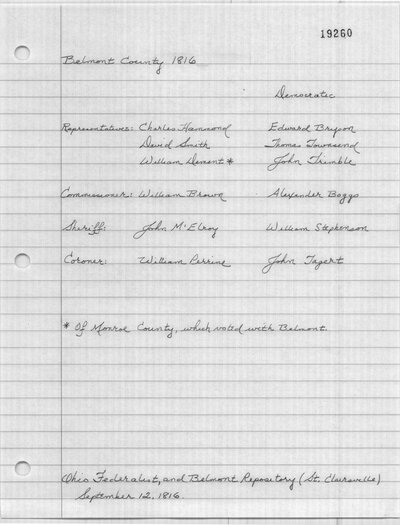 19260
Belmont County 1816
Democratic
Representatives: Charles Hammond Edward Bryson
David Smith Thomas Townsend
William Dement * John Trimble
Commissioner: William Brown Alexander Boggs
Sheriff: John M'Elroy William Stephenson
Coroner: William Perrine John Tagert
* Of Monroe County, which voted with Belmont.
Ohio Federalist, and Belmont Repository (St. Clairsville)
September 12, 1816.